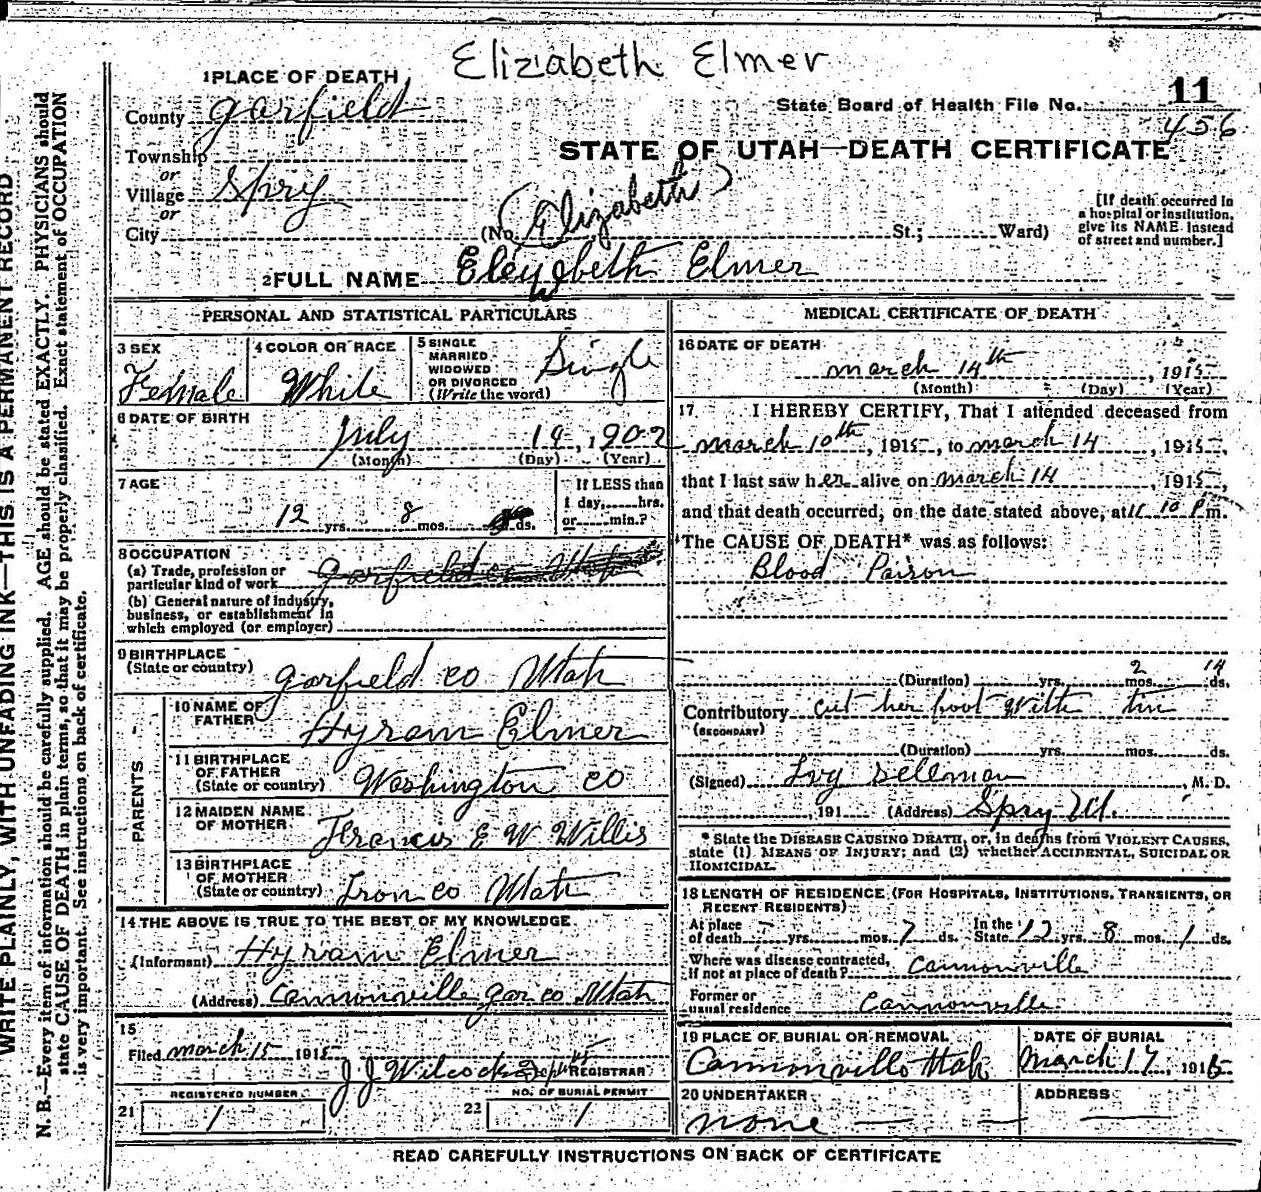 Elizabeth Elmer
1 PLACE OF DEATH
11
State Board of Health File No.
456
County Garfield
STATE OF UTAH—DEATH CERTIFICATE
Township
or
Village Spry
or
City
(No. (Elizabeth) St.; Ward)
[If death occurred in
a hospital or institution,
give its NAME instead
of street and number.]
2 FULL NAME Eleyzbeth Elmer
PERSONAL AND STATISTICAL PARTICULARS
3 SEX
Female
4 COLOR OR RACE
White
5 SINGLE
MARRIED
WIDOWED
OR DIVORCED
(Write the word)
Single
6 DATE OF BIRTH
July 14, 1902
(Month) (Day) (Year)
7 AGE
12 yrs. 8 mos. ds.
If LESS than
1 day, hrs.
or min.?
8 OCCUPATION
(a) Trade, profession or
particular kind of work Garfield co Utah
(b) General nature of industry,
business, or establishment in
which employed (or employer)
9 BIRTHPLACE
(State or country) Garfield co Utah
PARENTS
10 NAME OF
FATHER Hyram Elmer
11 BIRTHPLACE
OF FATHER
(State or country) Washington co
12 MAIDEN NAME
OF MOTHER Francis E W Willis
13 BIRTHPLACE
OF MOTHER
(State or country) Iron co Utah
14 THE ABOVE IS TRUE TO THE BEST OF MY KNOWLEDGE
(Informant) Hyram Elmer
(Address) Cannonville Gar co Utah
15
Filed march 15 1915 J J Wilcock REGISTRAR
REGISTERED NUMBER
21 1
NO. OF BURIAL PERMIT
22 1
MEDICAL CERTIFICATE OF DEATH
16 DATE OF DEATH
march 14th, 1915
(Month) (Day) (Year)
17 I HEREBY CERTIFY, That I attended deceased from
march 10th, 1915, to march 14, 1915,
that I last saw her alive on march 14, 1915,
and that death occurred, on the date stated above, at 11 10 P m.
The CAUSE OF DEATH* was as follows:
Blood Poison
(Duration) yrs. 2 mos. 14 ds.
Contributory cut her foot with tin
(SECONDARY)
(Duration) yrs. mos. ds.
(Signed) Ivy Sellman, M. D.
, 191 (Address) Spry Ut.
* State the DISEASE CAUSING DEATH, or, in deaths from VIOLENT CAUSES,
state (1) MEANS OF INJURY; and (2) whether ACCIDENTAL, SUICIDAL OR
HOMICIDAL.
18 LENGTH OF RESIDENCE (FOR HOSPITALS, INSTITUTIONS, TRANSIENTS, OR
RECENT RESIDENTS)
At place
of death yrs. mos. 7 ds. In the State 12 yrs. 8 mos. 1 ds.
Where was disease contracted,
if not at place of death? Cannonville
Former or
usual residence Cannonville
19 PLACE OF BURIAL OR REMOVAL
Cannonville Utah
DATE OF BURIAL
March 17, 1915
20 UNDERTAKER
none
ADDRESS
READ CAREFULLY INSTRUCTIONS ON BACK OF CERTIFICATE
WRITE PLAINLY, WITH UNFADING INK—THIS IS A PERMANENT RECORD
N. B.—Every item of information should be carefully supplied. AGE should be stated EXACTLY. PHYSICIANS should
state CAUSE OF DEATH in plain terms, so that it may be properly classified. Exact statement of OCCUPATION
is very important. See instructions on back of certificate.